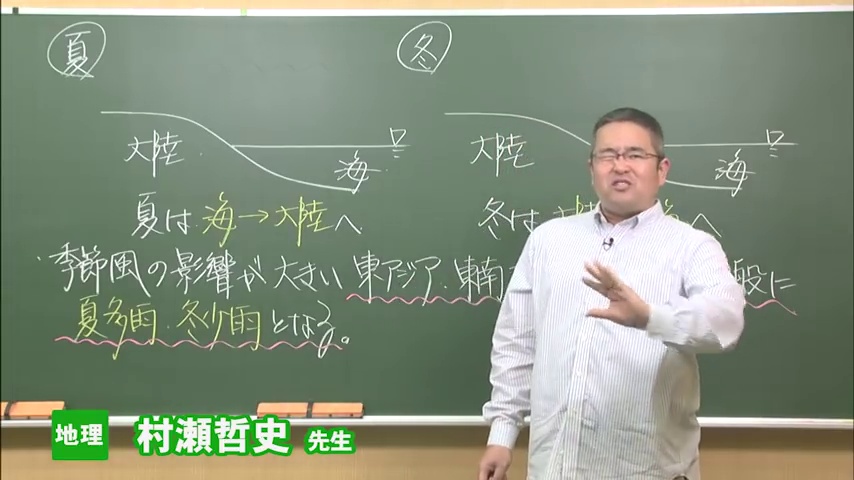 夏
冬
大陸
海
大陸
海
夏は 海→大陸へ
冬は 大陸 へ
季節風の影響が大きい東アジア・東南 般に
夏多雨・冬少雨となる。
地理 村瀬哲史 先生